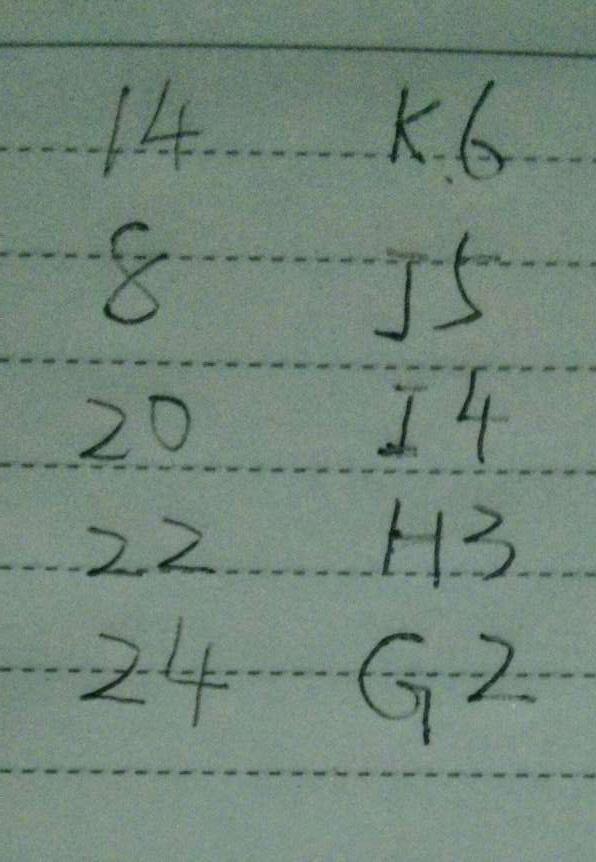 14 K.6
8 J5
20 I4
22 H3
24 G2